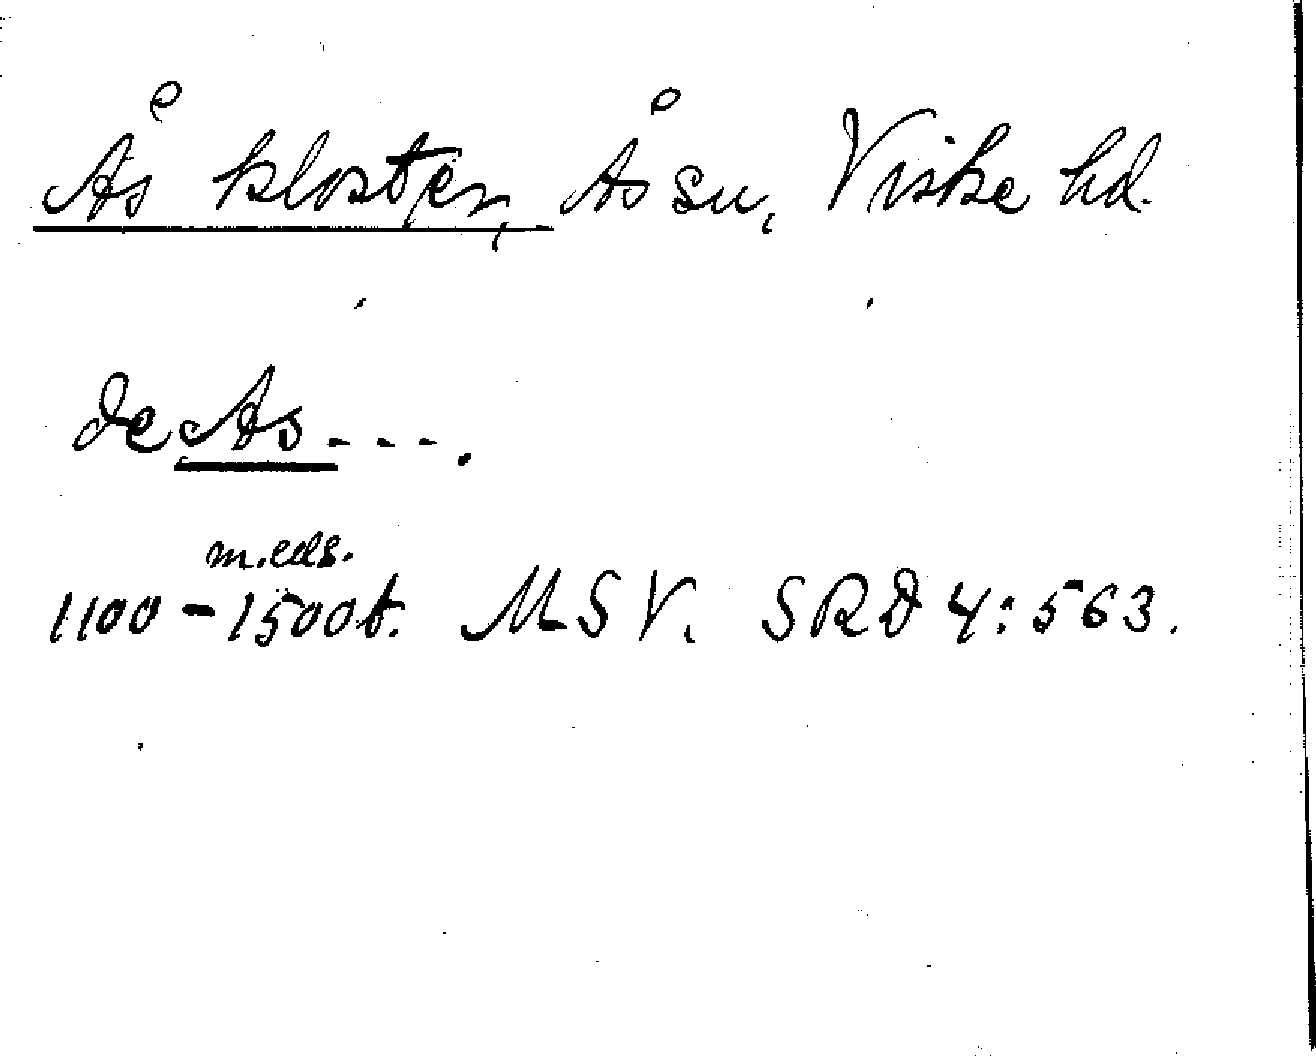 Ås kloster, Ås sn, Viske hd.
de As ---.
m.eds.
1100-1500t. MSV. SRD 4:563.